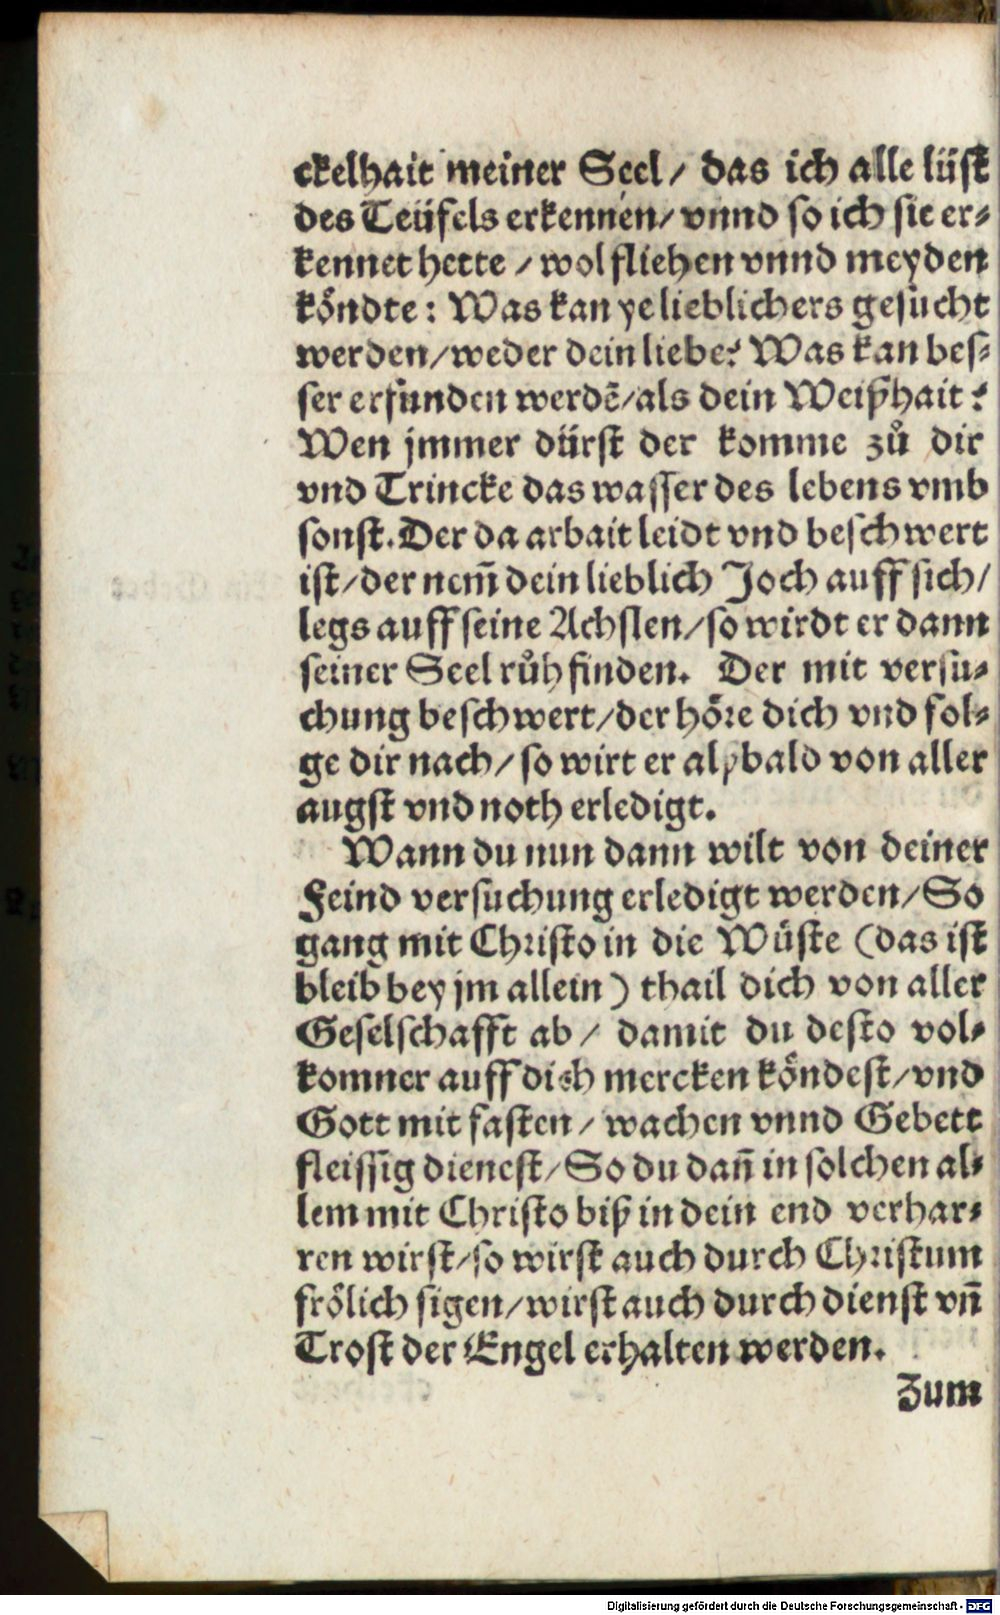 ckelhait meiner Seel / das ich alle lüst
des Teüfels erkennen / vnnd so ich sie er⸗
kennet hette / wol fliehen vnnd meyden
köndte: Was kan ye lieblichers gesůcht
werden / weder dein liebe? Was kan bes⸗
ser erfunden werdẽ / als dein Weißhait?
Wen jmmer dürst der komme zů dir
vnd Trincke das wasser des lebens vmb
sonst. Der da arbait leidt vnd beschwert
ist / der nem̃ dein lieblich Joch auff sich /
legs auff seine Achslen / so wirdt er dann
seiner Seel růh finden. Der mit versu⸗
chung beschwert / der höre dich vnd fol⸗
ge dir nach / so wirt er alßbald von aller
angst vnd noth erledigt.
Wann du nun dann wilt von deiner
Feind versuchung erledigt werden / So
gang mit Christo in die Wüste (das ist
bleib bey jm allein) thail dich von aller
Geselschafft ab / damit du desto vol⸗
komner auff dich mercken köndest / vnd
Gott mit fasten / wachen vnnd Gebett
fleissig dienest / So du dañ in solchen al⸗
lem mit Christo biß in dein end verhar⸗
ren wirst / so wirst auch durch Christum
frölich sigen / wirst auch durch dienst vñ
Trost der Engel erhalten werden.
Zum
Digitalisierung gefördert durch die Deutsche Forschungsgemeinschaft - DFG